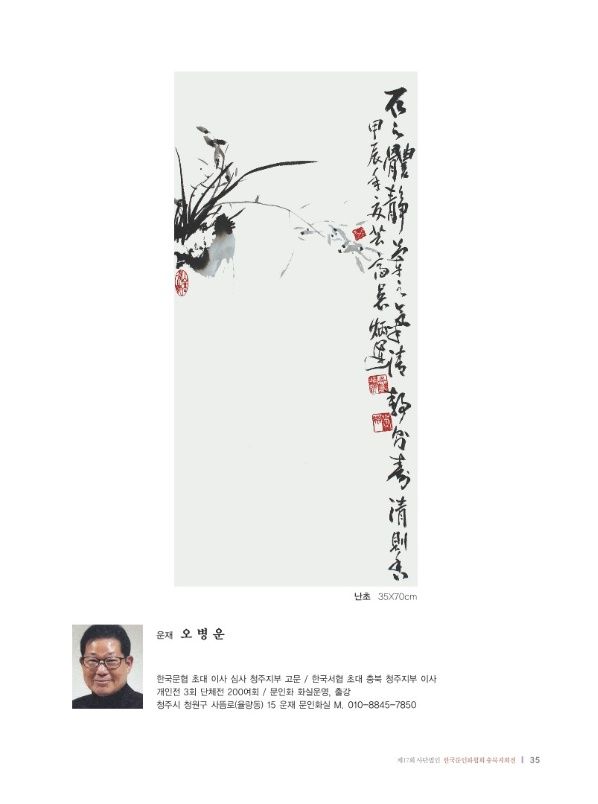 石之體靜 草之氣清 靜則壽 清則香
甲辰年夏芸 吳炳運
난초 35X70cm
운재 오병운
한국문협 초대 이사 심사 청주지부 고문 / 한국서협 초대 충북 청주지부 이사
개인전 3회 단체전 200여회 / 문인화 화실운영, 출강
청주시 청원구 사뜸로(율량동) 15 운재 문인화실 M. 010-8845-7850
제17회 사단법인 한국문인화협회 충북지회전 | 35